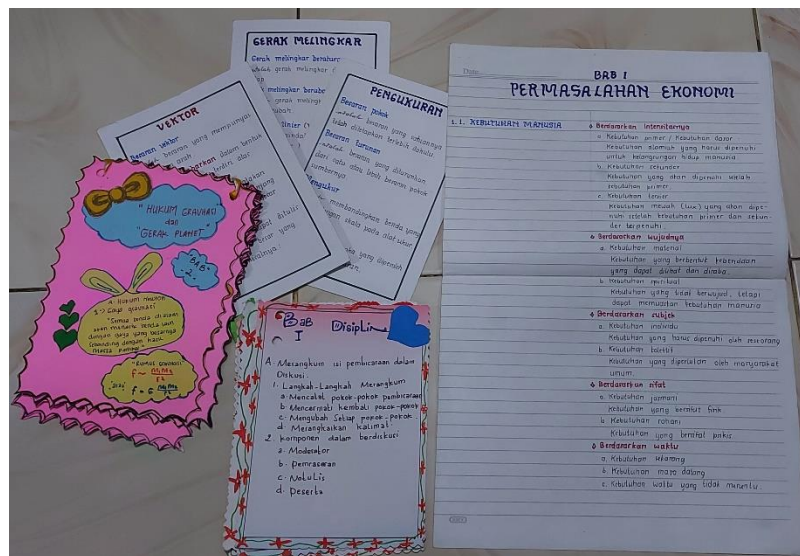 GERAK MELINGKAR
Gerak melingkar beraturan
adalah gerak melingkar
melingkar berubah
gerak melingkar
VEKTOR
Besaran vektor
besaran yang mempunyai
arah
dalam bentuk
terdiri atas
PENGUKURAN
Besaran pokok
adalah besaran yang satuannya
telah ditetapkan terlebih dahulu
Besaran turunan
adalah besaran yang diturunkan
dari satu atau lebih besaran pokok
sumbernya
Mengukur
membandingkan benda yang
dengan skala pada alat ukur
yang diperoleh
"HUKUM GRAVITASI
dan
GERAK PLANET"
"BAB"
-2-
A. Hukum Newton
1.) Gaya gravitasi
"Semua benda di alam
akan menarik benda lain
dengan gaya yang besarnya
sebanding dengan hasil
massa partikel"
"RUMUS GRAVITASI"
Bab Disiplin
I
A. Merangkum isi pembicaraan dalam
Diskusi
1. Langkah-Langkah Merangkum
a. Mencatat pokok-pokok pembicaraan
b. Mencermati kembali pokok-pokok
c. Mengubah setiap pokok-pokok
d. Merangkaikan kalimat
2. Komponen dalam berdiskusi
a. Moderator
b. Pemrasaran
c. Notulis
d. Peserta
Date
BAB I
PERMASALAHAN EKONOMI
1.1. KEBUTUHAN MANUSIA
Berdasarkan Intensitasnya
a. Kebutuhan primer / Kebutuhan dasar
Kebutuhan alamiah yang harus dipenuhi
untuk kelangsungan hidup manusia
b. Kebutuhan sekunder
Kebutuhan yang akan dipenuhi setelah
kebutuhan primer
c. Kebutuhan tersier
Kebutuhan mewah (lux) yang akan dipe-
nuhi setelah kebutuhan primer dan sekun-
der terpenuhi.
Berdasarkan wujudnya
a. Kebutuhan material
Kebutuhan yang berbentuk kebendaan
yang dapat dilihat dan diraba.
b. Kebutuhan spiritual
Kebutuhan yang tidak berwujud, tetapi
dapat memuaskan kebutuhan manusia
Berdasarkan subjek
a. Kebutuhan individu
Kebutuhan yang harus dipenuhi oleh seseorang
b. Kebutuhan kolektif
Kebutuhan yang diperlukan oleh masyarakat
umum.
Berdasarkan sifat
a. Kebutuhan jasmani
Kebutuhan yang bersifat fisik.
b. Kebutuhan rohani
Kebutuhan yang bersifat psikis.
Berdasarkan waktu
a. Kebutuhan sekarang
b. Kebutuhan masa datang
c. Kebutuhan waktu yang tidak menentu.